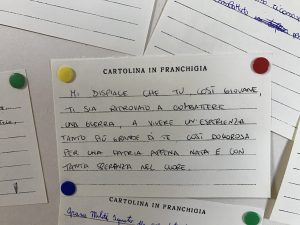 CARTOLINA IN FRANCHIGIA
MI DISPIACE CHE TU, COSÌ GIOVANE,
TI SIA RITROVATO A COMBATTERE
UNA GUERRA, A VIVERE UN'ESPERIENZA
TANTO PIÙ GRANDE DI TE COSÌ DOLOROSA
PER UNA PATRIA APPENA NATA E CON
TANTA SPERANZA NEL CUORE.
CARTOLINA IN FRANCHIGIA